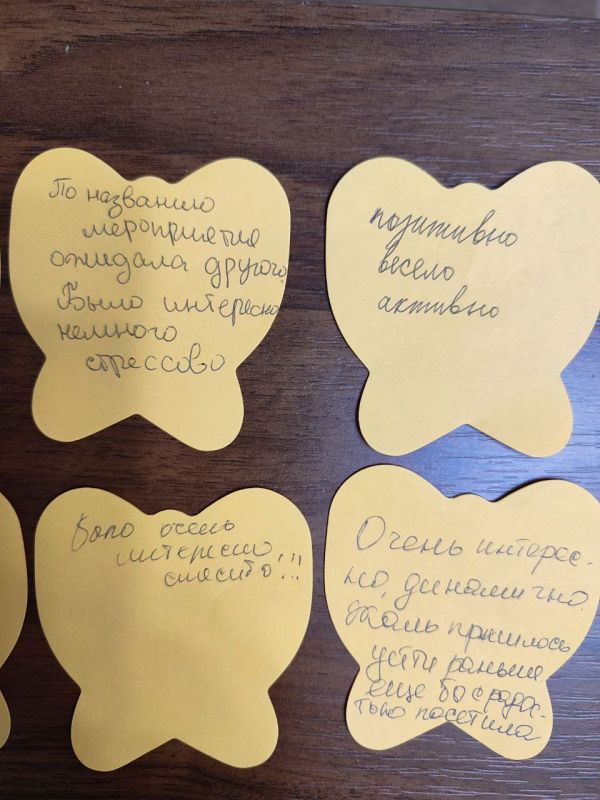 По названию
мероприятия
ожидала другого.
Было интересно
немного
стрессово
позитивно
весело
активно
Было очень
интересно,
спасибо!!!
Очень интерес-
но, динамично.
Жаль пришлось
уйти раньше
еще бы с радос-
тью посетила